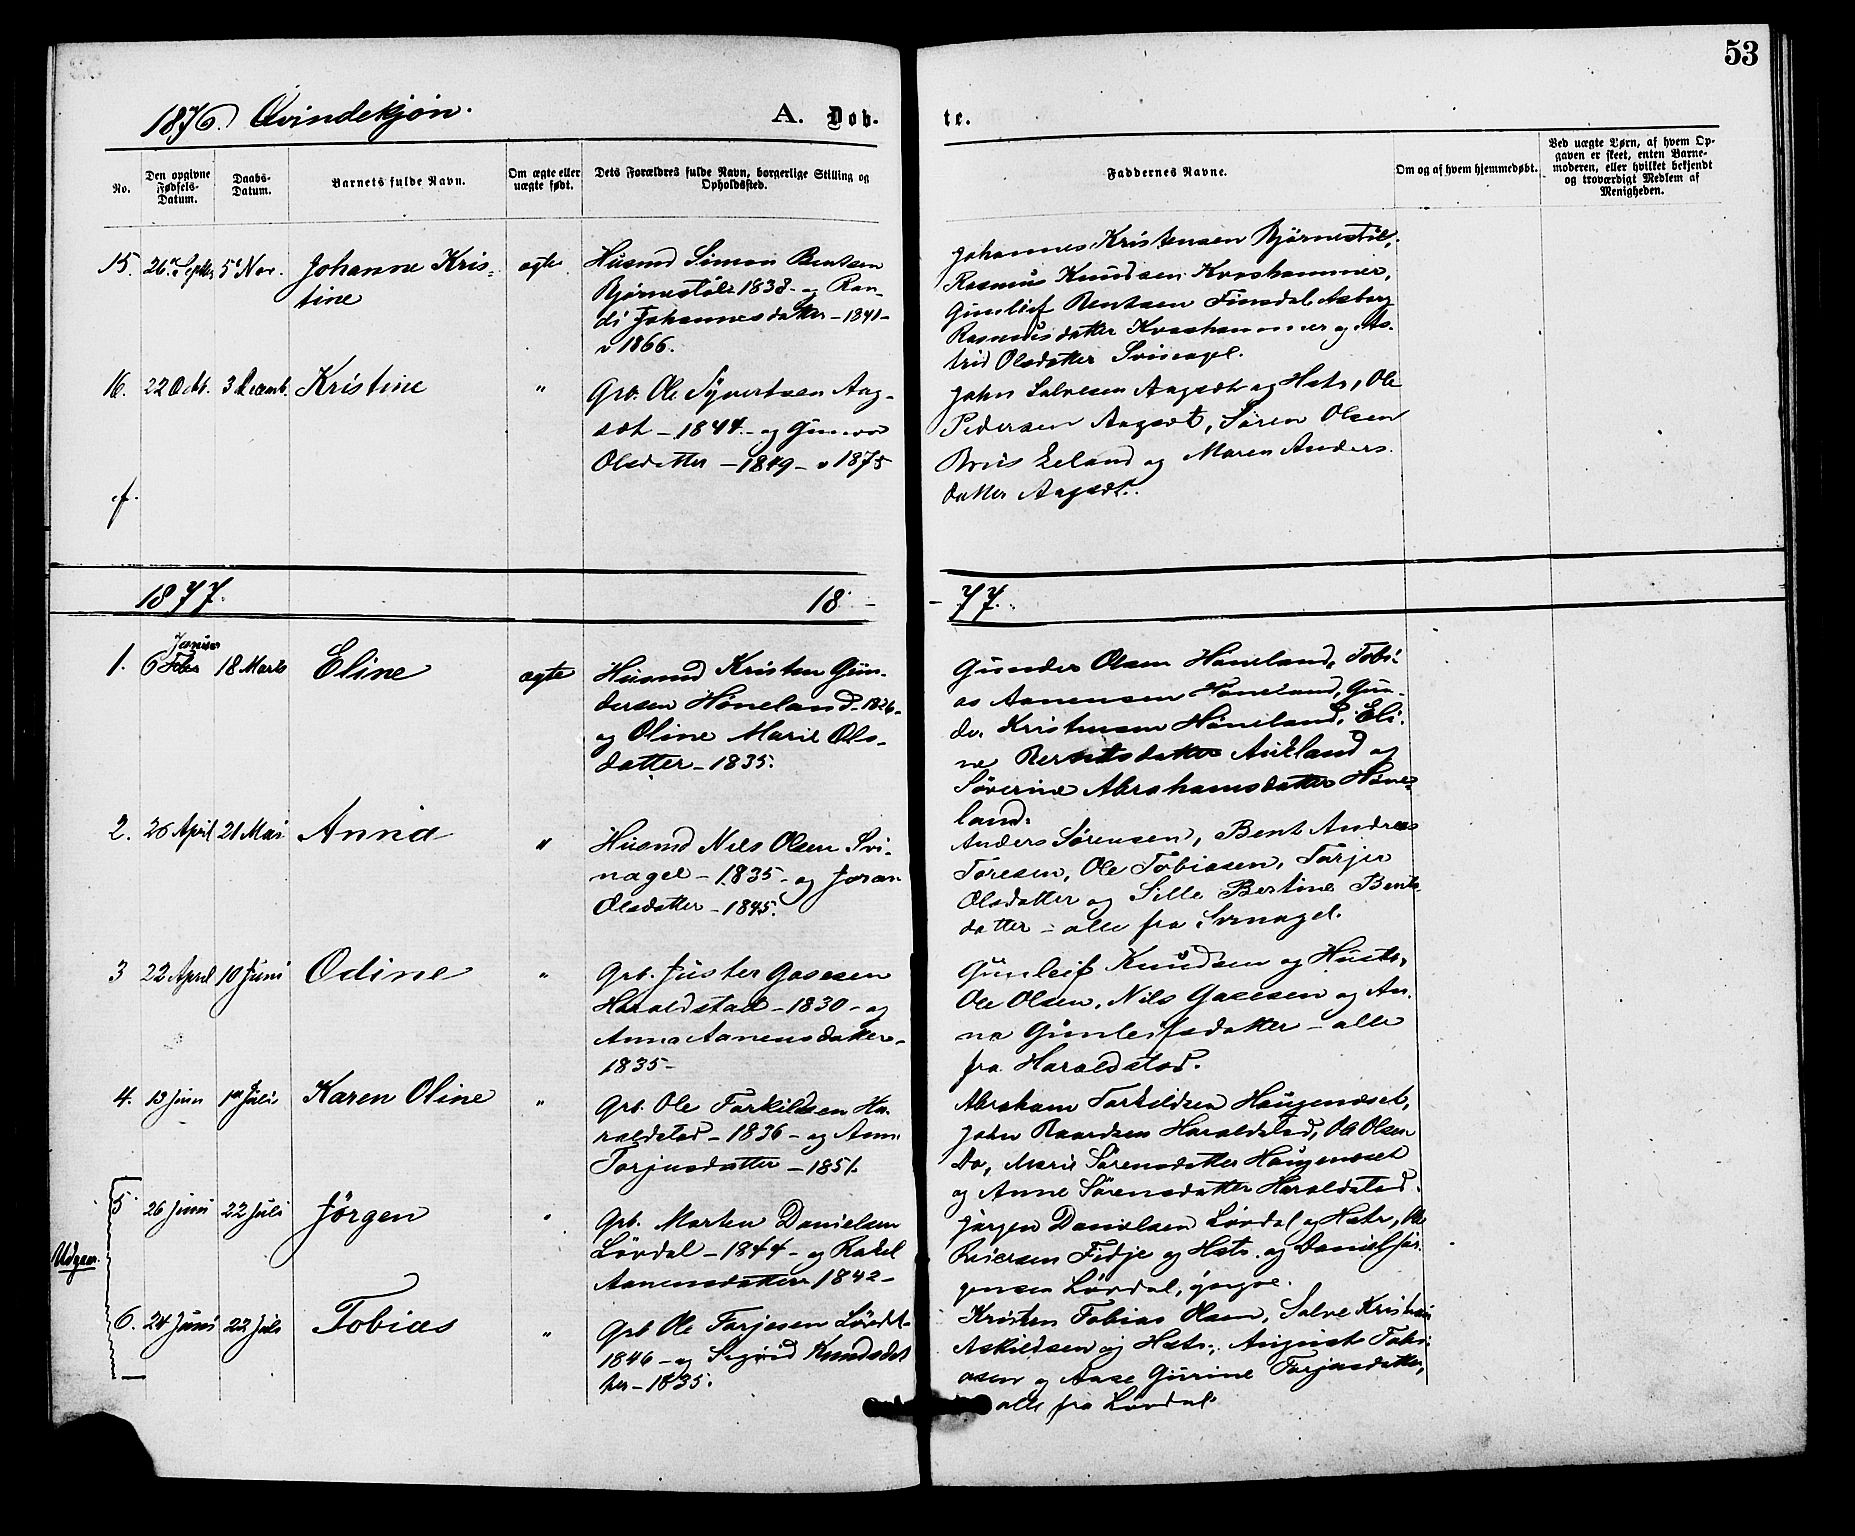 53
1876. Qvindekjøn.
A. Døb-
te.
No.
Den opgivne Fødsels-Datum.
Daabs-Datum.
Barnets fulde Navn.
Om ægte eller uægte født.
Dets Forældres fulde Navn, borgerlige Stilling og Opholdssted.
Faddernes Navne.
Om og af hvem hjemmedøbt.
Ved uægte Børn, af hvem Op-
gaven er skeet, enten Barne-
moderen, eller hvilket bekjendt
og troværdigt Medlem af
Menigheden.
15. 26de Septbr 5te Nov. Johanne Kris-
tine
ægte
Husmd Simon Bentsen
Bjørnestøl 1838 og Ran-
di Johannesdatter - 1841 -
v 1866.
Johannes Kristensen Bjørnestøl,
Rasmus Knudsen Kvashammer,
Gunleif Bentsen Finsdal, Asborg
Rasmusdatter Kvashammer og As-
trid Olsdatter Svinagel.
16. 22 Octb. 3 Decemb. Kristine
"
Grb. Ole Syvertsen Aag-
sæt - 1844 - og Gunvor
Olsdatter - 1849 - v 1875
John Salvesen Aagsæt og Hstr, Ole
Pedersen Aagsæt, Søren Olsen
Briis Eeland og Maren Anders-
datter Aagsæt.
f.
1877. 18 -
- 77.
1. 6 Januar Febr 18 Marts Eline
ægte
Husmd Kristen Gun-
dersen Høneland - 1826 -
og Oline Marie Ols-
datter - 1835.
Gunder Olsen Høneland, Tobi-
as Aanensen Høneland, Gun-
der Kristensen Høneland, Eli-
ne Berntsdatter Aukland og
Søverine Abrahamsdatter Høne-
land.
2. 26 April 21 Mai Anna
"
Husmd Nils Olsen Svi-
nagel - 1835 - og Joran
Olsdatter - 1845.
Anders Sørensen, Bent Andreas
Toresen, Ole Tobiasen, Torjer
Olsdatter og Sille Bertine Bents-
datter - alle fra Svinagel.
3 22 April 10 Juni Odine
"
Grb. Juster Gasesen
Haraldstad - 1830 - og
Anna Aanensdatter -
1835 -
Gunleif Knudsen og Hustr,
Ole Olsen, Nils Gasesen og An-
na Gunleifsdatter - alle
fra Haraldstad.
4. 13 Juni 1ste Juli Karen Oline
"
Grb. Ole Torkildsen Ha-
raldstad - 1836 - og Anne
Torjusdatter - 1851.
Abraham Torkildsen Haugenæset,
John Baardsen Haraldstad, Ole Olsen
Do, Marie Sørensdatter Haugenæset
og Anne Sørensdatter Haraldstad.
Udgaar.
5 26 Juni 22 Juli Jørgen
"
Grb. Morten Danielsen
Løvdal - 1844 - og Rakel
Aanensdatter 1842 -
Jørgen Danielsen Løvdal og Hstr, Ole
Reiersen Fidje og Hstr. og Daniel Jør-
gensen Løvdal,
6. 24 Juni 22 Juli Tobias
"
Grb Ole Torjesen Løvdal -
1846 - og Sigrid Knudsdat-
ter - 1835.
Kristen Tobias Olsen, Salve Kristian
Askildsen og Hstr., August Tobi-
asen og Aase Gurine Torjusdatter,
alle fra Løvdal